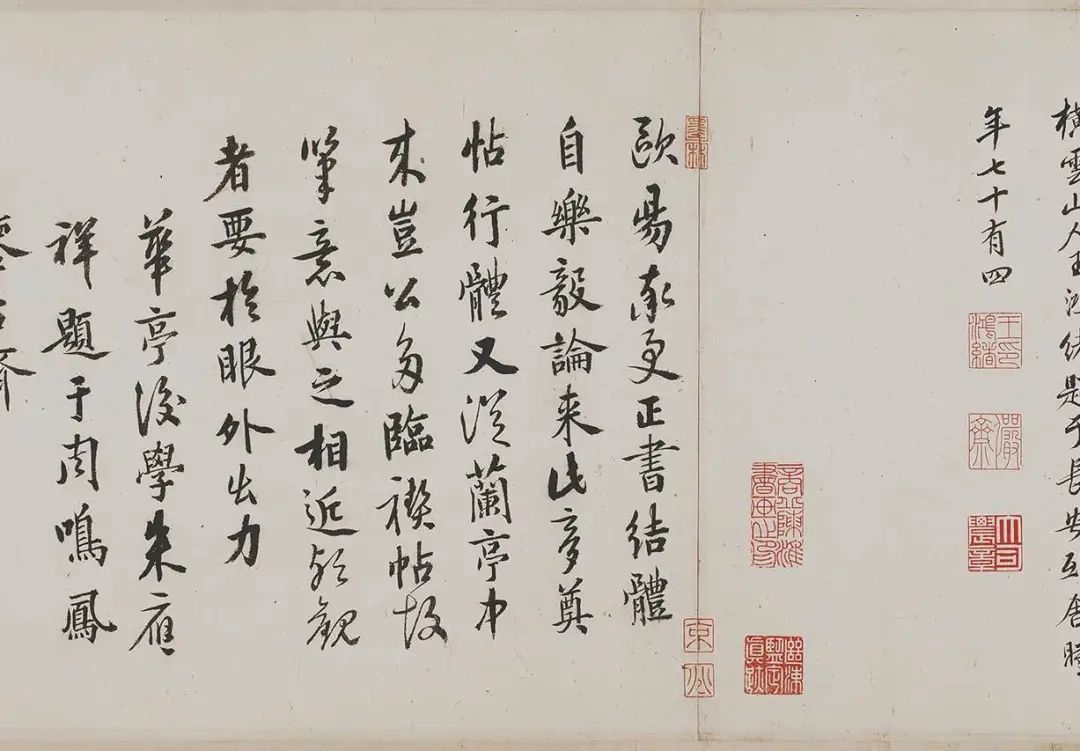 橫雲山人王鴻緒題于長安互唐時
年七十有四
王印鴻緒
儼齋
大司農章
歐陽率更正書結體
自樂毅論來此夢奠
帖行體又從蘭亭中
來豈公多臨禊帖故
筆意與之相近耶觀
者要於眼外出力
華亭後學朱應
祥題于周鳴鳳